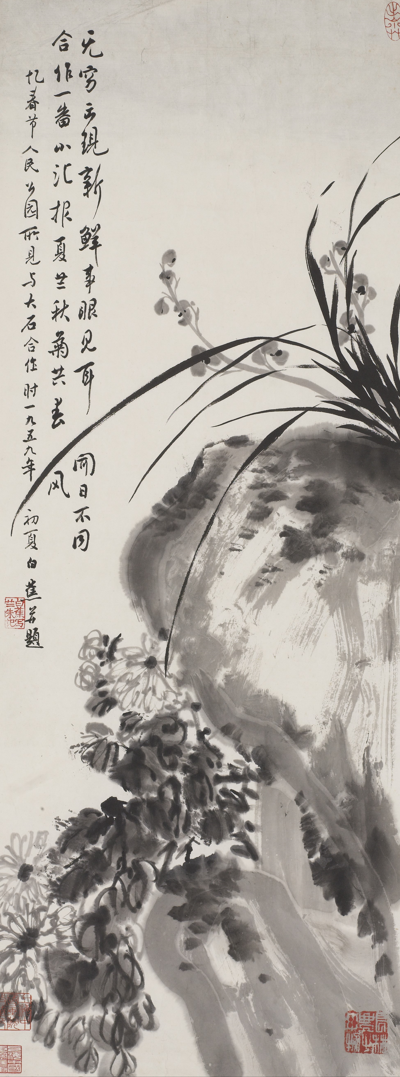 无穷出现新鲜事眼见耳闻日不同
合作一番小汇报夏兰秋菊共春风
忆春节人民公园所见与大石合作时一九五九年初夏白蕉并题